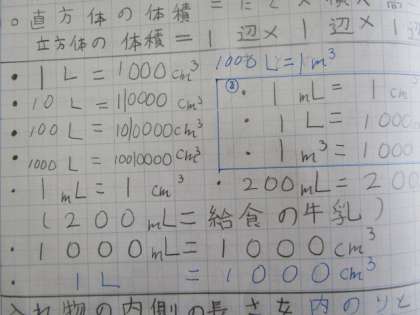 ○直方体の体積=たて×横×高
立方体の体積=1辺×1辺×1辺
・1L=1000cm³ 1000L=1m³
・10L=110000cm³ ② ・1mL=1cm
・100L=1010000cm³ ・1L=1000
・1000L=10010000cm³ ・1m³=1000
・1mL=1cm³ ・200mL=200
(200mL=給食の牛乳)
・1000mL=1000cm³
・1L=1000cm³
入れ物の内側の長さを内のりと